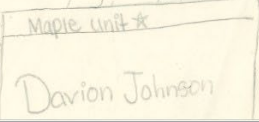 Maple unit☆
Davion Johnson